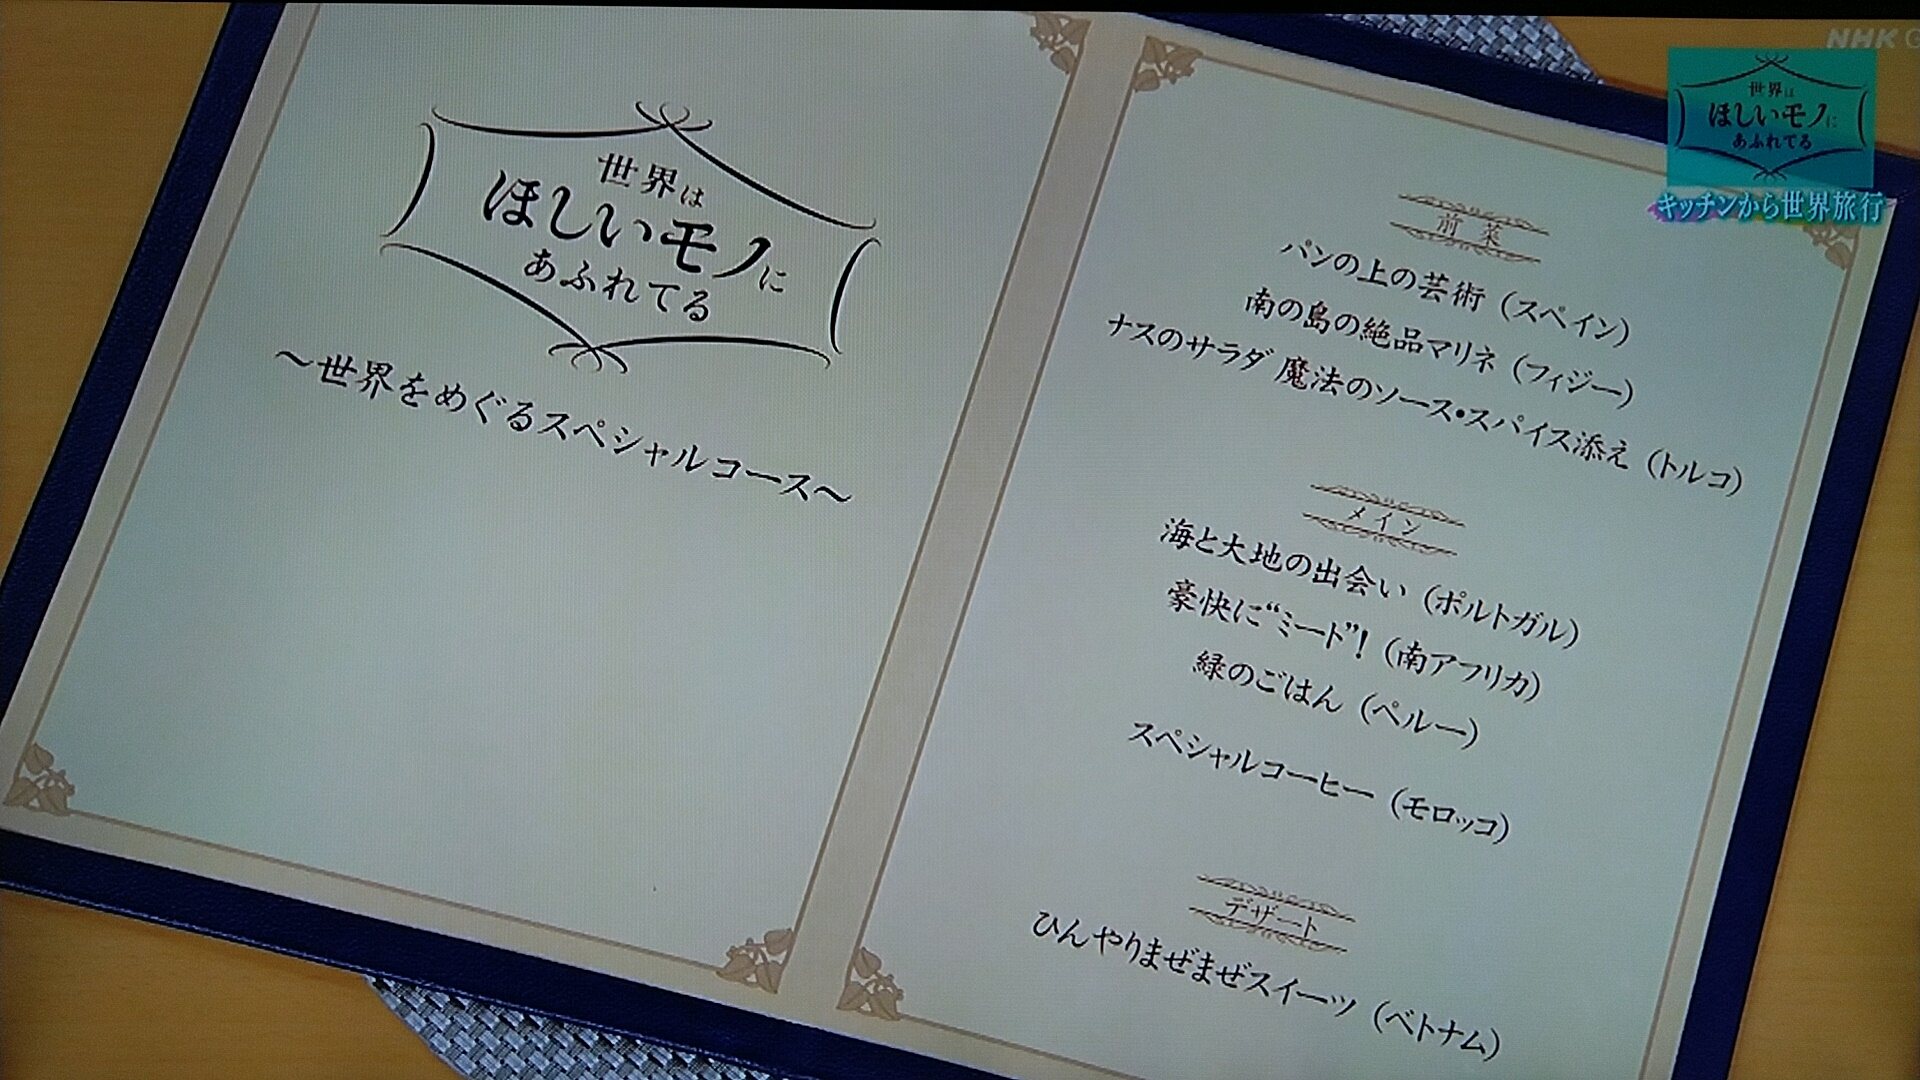 世界は
ほしいモノに
あふれてる
～世界をめぐるスペシャルコース～
前菜
パンの上の芸術（スペイン）
南の島の絶品マリネ（フィジー）
ナスのサラダ 魔法のソース・スパイス添え（トルコ）
メイン
海と大地の出会い（ポルトガル）
豪快に“ミート”！（南アフリカ）
緑のごはん（ペルー）
スペシャルコーヒー（モロッコ）
デザート
ひんやりまぜまぜスイーツ（ベトナム）
NHK G
世界は
ほしいモノに
あふれてる
キッチンから世界旅行